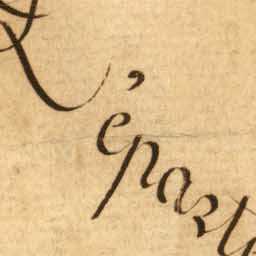 L'épart